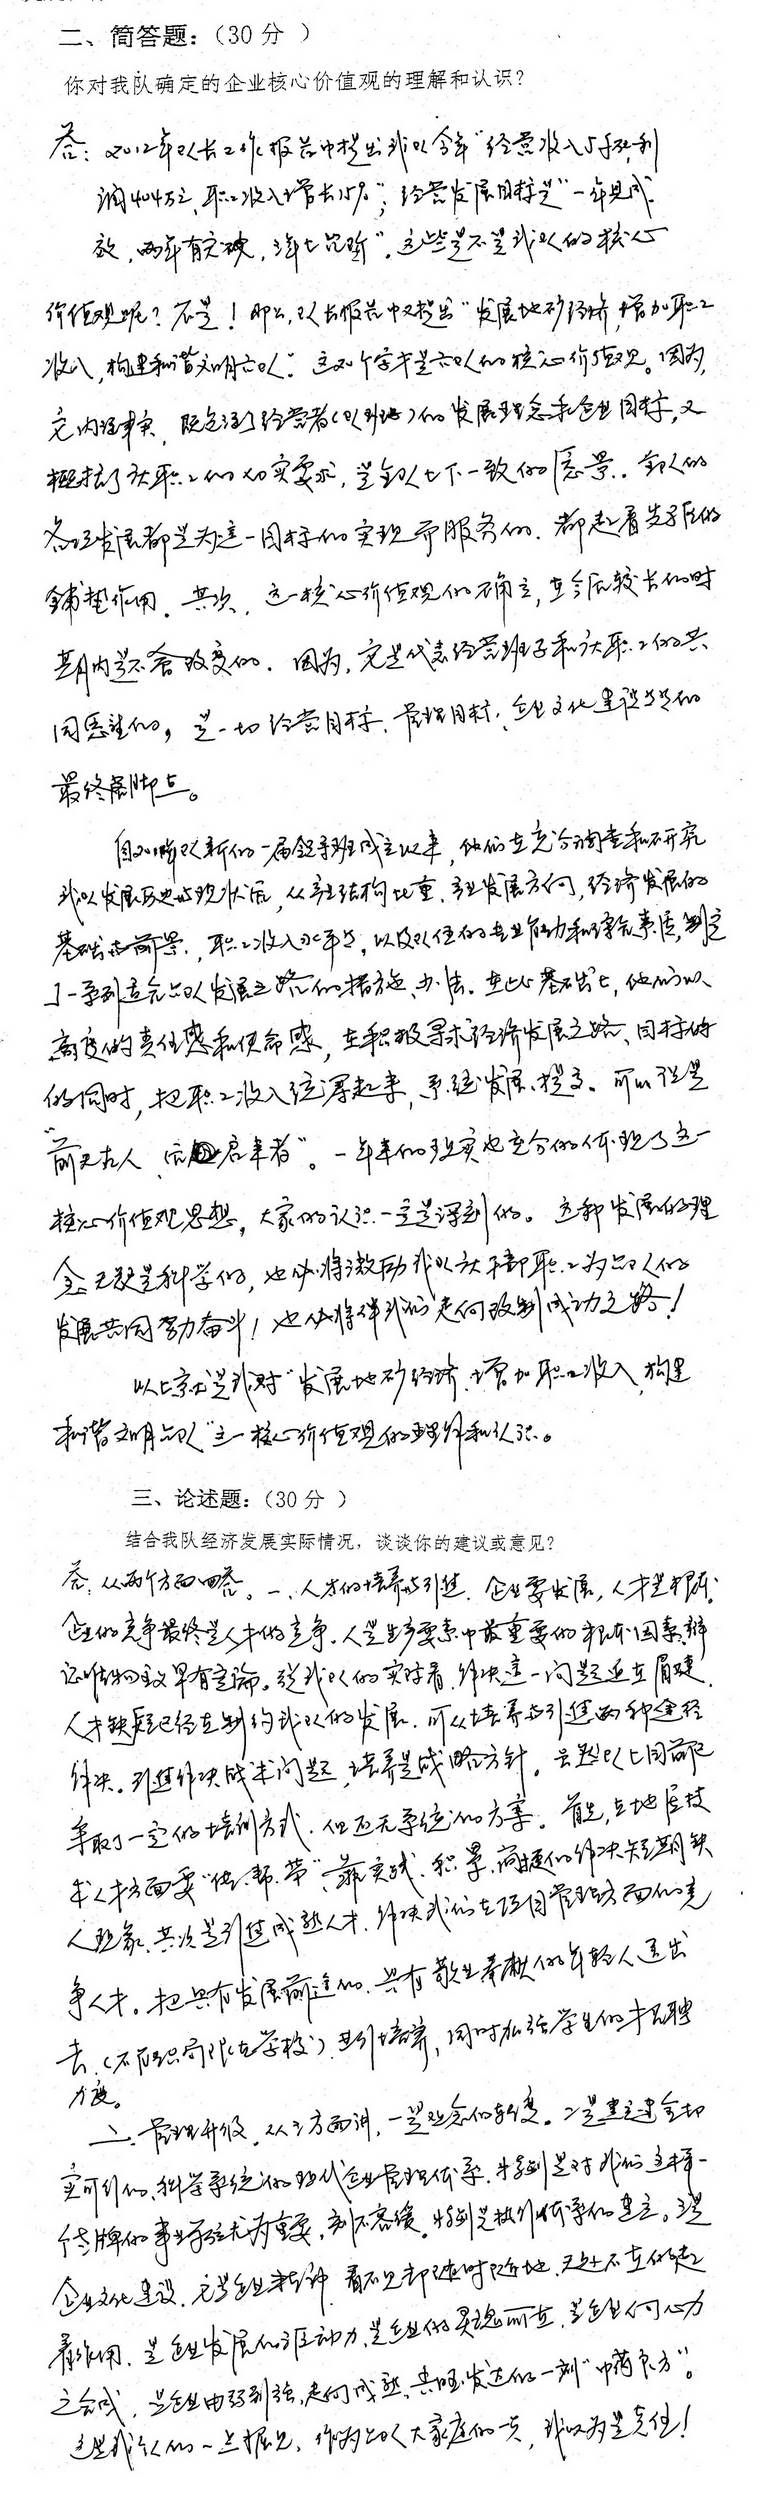 二、简答题：（30分 ）
你对我队确定的企业核心价值观的理解和认识？
答：2012年队长工作报告中提出我队今年“经营收入5千万，利
润404万元，职工收入增长15%”；经营发展目标是“一年见成
效，两年有突破，三年上台阶”。这些是不是我队的核心
价值观呢？不是！那么，队长报告中又提出“发展地矿经济，增加职工
收入，构建和谐文明六队”。这20个字才是六队的核心价值观。因为，
它内涵丰实，既包涵了经营者（队班子）的发展理念和企业目标，又
概括了広职工的切实要求，是全队上下一致的愿景。全队的
各项发展都是为这一目标的实现而服务的．都起着先导性的
铺垫作用．其次，这一核心价值观的确立，在今后较长的时
期内是不会改变的．因为，它是代表经营班子和広职工的共
同愿望的，是一切经营目标、管理目标、企业文化建设等的
最终落脚点。
自2011年我队新的一届领导班成立以来，他们在充分调查和研究
我队发展历史与现状后，从产业结构比重、产业发展方向，经济发展的
基础与前景，职工收入水平等，以及队伍的专业能力和综合素质，制定
了一系列适合六队发展之路的措施、办法．在此基础上，他们以
高度的责任感和使命感，在积极寻求经济发展之路、目标的
的同时，把职工收入统筹起来，系统发展、提高。可以说是
“前无古人，后启来者”。一年来的现实也充分的体现了这一
核心价值观思想，大家的认识一定是深刻的。这种发展的理
念无疑是科学的，也必将激励我队広大干部职工为六队的
发展共同努力奋斗！也必将伴我们走向胜利成功之路！
以上就是我对“发展地矿经济、增加职工收入，构建
和谐文明六队”这一核心价值观的理解和认识。
三、论述题：（30分 ）
结合我队经济发展实际情况，谈谈你的建议或意见？
答：从两个方面略答。一、人才的培养与引进．企业要发展，人才是根本．
企业的竞争最终是人才的竞争．人是生产要素中最重要的根本因素，辩
证唯物主义早有定论。从我队的实际看，解决这一问题迫在眉睫，
人才缺乏已经在制约我队的发展．可从培养与引进两种途径
解决。引进解决战术问题，培养是战略方针．虽然队上目前已
采取了一定的培训方式．但还无系统的方案。首先，在地质技
术人才方面要“传、帮、带”，靠实战、积累，简捷的解决短期缺
人现象．其次是引进成熟人才．解决我们在项目管理方面的竞
争人才。把具有发展前途的．具有敬业奉献的年轻人送出
去（不应只局限在学校）进行培养，同时加强学生的招聘
力度。
二．管理升级．从三方面讲，一是观念的转变。二是建立健全切
实可行的、科学系统的现代企业管理体系．特别是对我们这样一
个老牌的事业单位尤为重要，刻不容缓．特别是执行体系的建立。三是
企业文化建设．它是企业精神．看不见却随时随地、无处不在的起
着作用．是企业发展的推动力，是企业的灵魂所在，是企业向心力
之合成．是企业由弱到强，走向成熟、兴旺、发达的一剂“中药良方”。
这是我个人的一点拙见．作为六队大家庭的一员，我以为是责任！